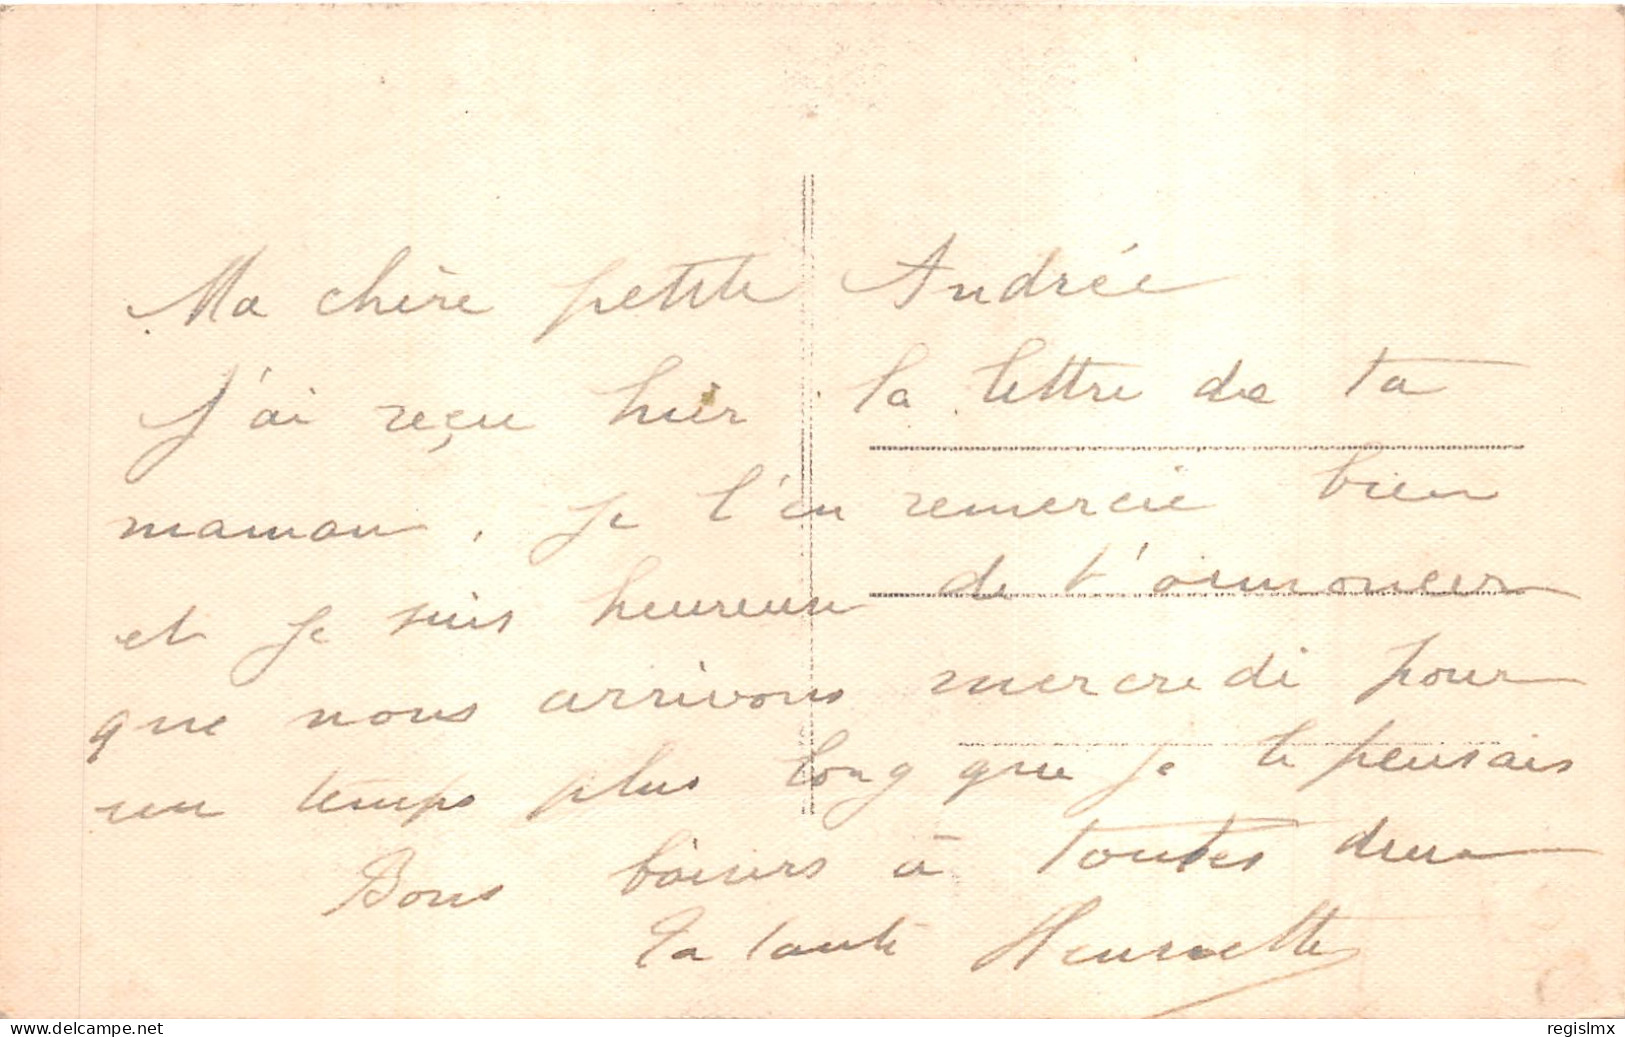 Ma chère petite Andrée
J'ai reçu hier la lettre de ta
maman, je l'en remercie bien
et je suis heureuse de t'annoncer
que nous arrivons mercredi pour
un temps plus long que je le pensais
Bons baisers à toutes deux
Ta tante Henriette
www.delcampe.net
regislmx